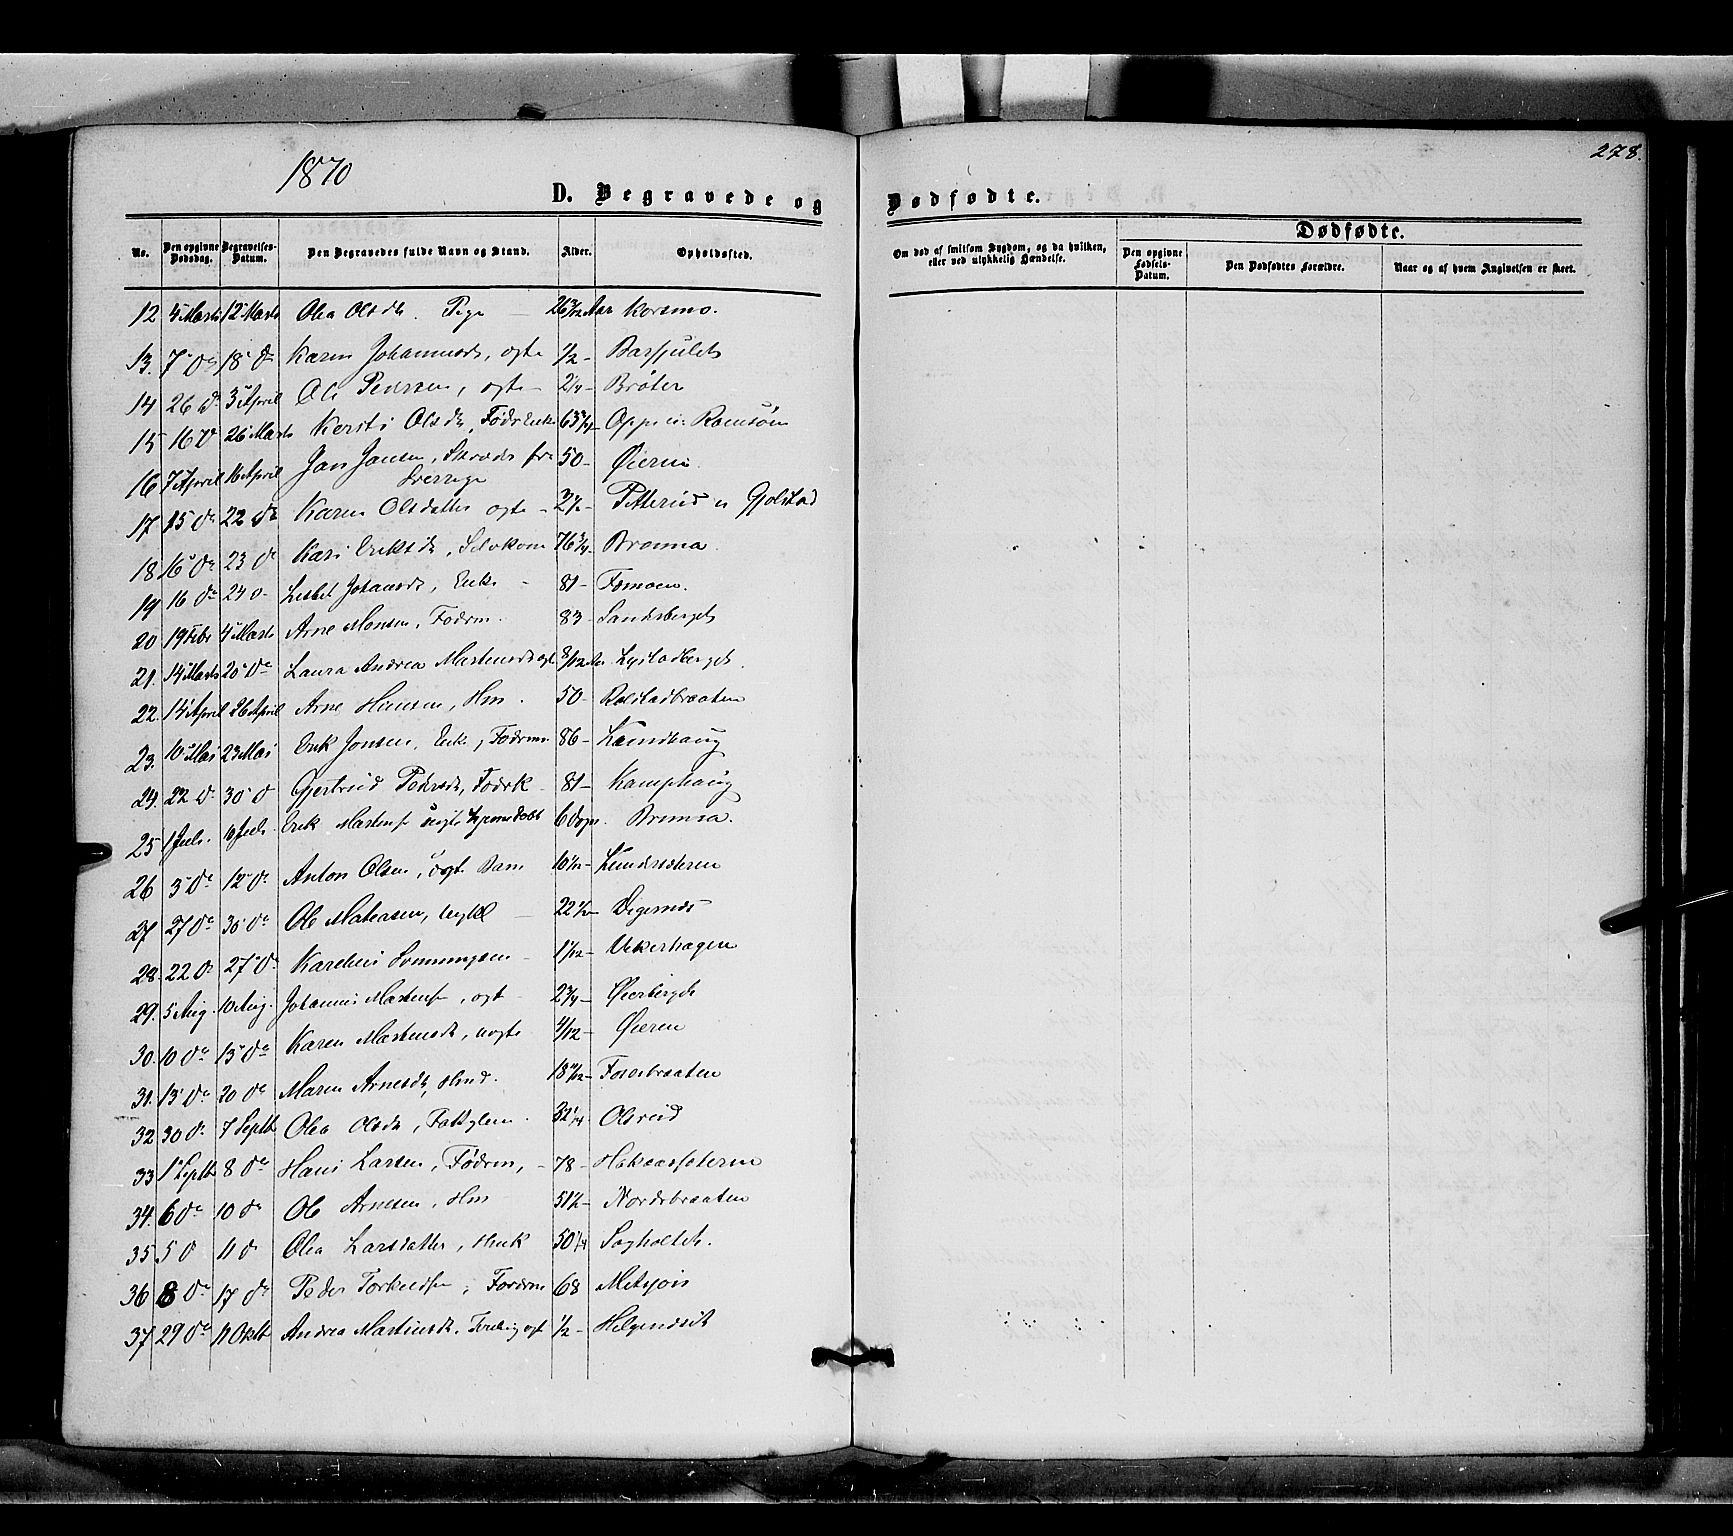 1870
278.
D. Begravede og Dødfødte.
No. Den opgivne Dødsdag. Begravelses-Datum. Den Begravedes fulde Navn og Stand. Alder. Opholdssted.
Om død af smitsom Sygdom, og da hvilken, eller ved ulykkelig Hændelse.
Dødfødte.
Den opgivne Fødsels-Datum. Den Dødfødtes Forældre. Naar og af hvem Angivelsen er skeet.
12 4 Marts 12 Marts Olea Olsdtr. Pige Aar Korsmo.
13. 7 Do 18 Do Karen Johannesdr, ægte 1/2
14 26 Do 3 April Ole Pedersen, ægte 2 1/4 Brøter
15 16 D 26 Marts Kersti Olsdtr, Føderenke Oppi
16 7 April 16 April Jan Jansen, fra Sverrige 50 Øieren.
17 15 Do 22 Do Karen Olsdatter ægte Petterud
18 16 Do 23 D Kari Eriksdtr, 76 3/4 Bronna.
19 16 Do 24 D Lisbet Johansdr, Enke 81 Tomoen.
20 19 Febr 4 Marts Arne Monsen, Fødrm. 83 Sandsberget
21. 14 Marts 20 Do Laura Andrea Martensdr ægt. 8/12 Lystadberget.
22. 14 April 26 April Arne Hansen, Hm. 50 Rolstadbraaten
23. 10 Mai 23 Mai Erik Jonsen, Enke, Fødrm. 86 Lundhaug
24. 22 D. 30 D Gjertrud Pedersdr, Føderk 81 Kamphaug
25 1 Juli. 10 Juli. Erik Martens 6 Døgn. Bronna.
26 3 Do 12 Do Anton Olsen, uægte Barn 10 1/12 Lundsæteren
27 27 Do 30 Do Ole Matiasen, Ungkl 22 1/2 Digernæs
28. 22 D 27 D. Karelius 1 1/12 Vekerhagen
29. 5 Aug. 10 Aug. Johannes Martens, ægt 2 3/4 Øierberget
30. 10 Do 15 Do Karen Martensdr, uægte 4/12 Øieren
31. 13 Do 20 Do Maren Arnesdtr, Hmd. Fososbraaten
32 30 D. 7 Septb Olea Olsdtr, Fattiglem. 32 1/4 Olsrud
33 1 Septb 8 Do Hans Larsen, Fødrm, 78 Haksaasæteren
34. 6 Do 10 Do Ole Arnesen, Hm 51 1/2 Nordsbraaten
35 5 D 11 D Olea Larsdatter, Hmk 50 1/4 Sagholtet.
36 8 Do 17 Do Peder Torkelds, Fødrm 68 Mitsjøis
37 29 Do 11 Oktb Andrea Martinsdr, ægt 1/2 Helgeneset